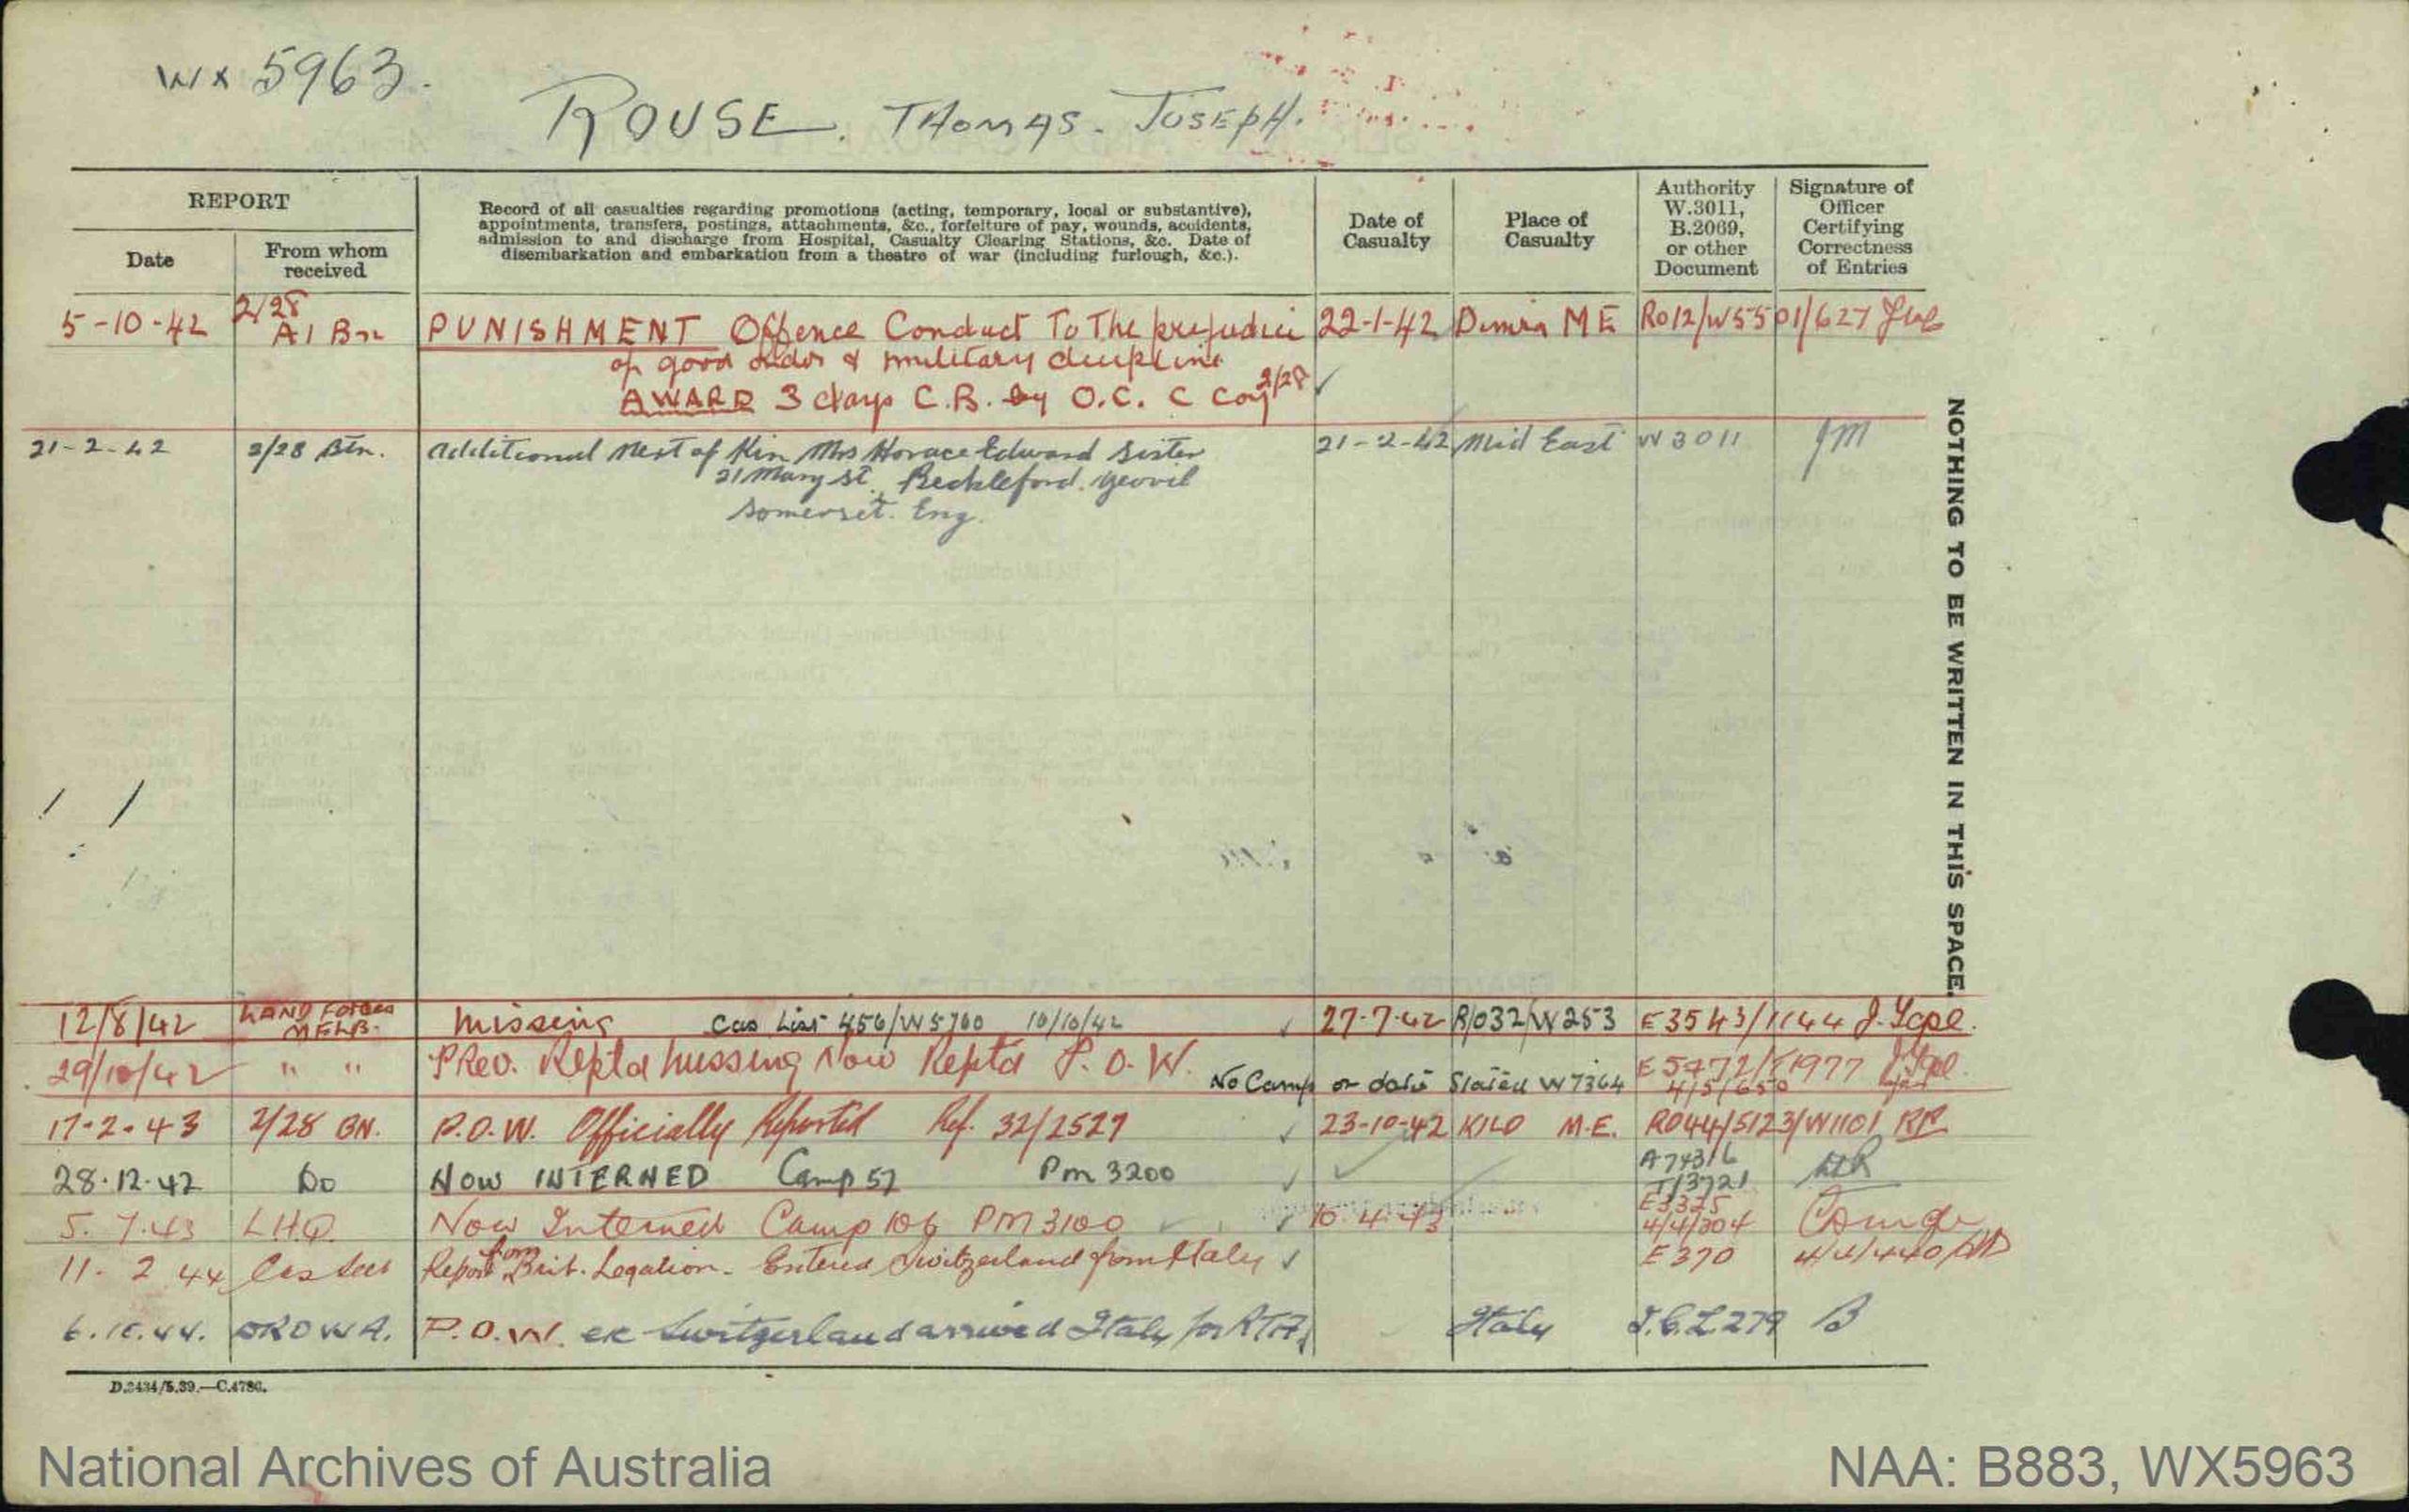 WX 5963.
ROUSE. THOMAS. JOSEPH.
REPORT
Date
From whom received
Record of all casualties regarding promotions (acting, temporary, local or substantive),
appointments, transfers, postings, attachments, &c., forfeiture of pay, wounds, accidents,
admission to and discharge from Hospital, Casualty Clearing Stations, &c. Date of
disembarkation and embarkation from a theatre of war (including furlough, &c.).
Date of Casualty
Place of Casualty
Authority W.3011, B.2069, or other Document
Signature of Officer Certifying Correctness of Entries
5-10-42 2/28 A1 Bn PUNISHMENT Offence Conduct To The prejudice 22-1-42 M E R012/W5501/627
of good order & military discipline
AWARD 3 days C.B. by O.C. C Coy 2/28
21-2-42 2/28 Btn. Additional Next of Kin Mrs Horace Edward Sister 21-2-42 Mid East W 3011 JM
21 Mary St. Yeovil
Somerset. Eng.
NOTHING TO BE WRITTEN IN THIS SPACE.
12/8/42 LAND FORCES MELB. Missing Cas List 456/W5760 10/10/42 27-7-42 R/032/W253 E3543/1144
29/10/42 " " Prev. Reptd Missing Now Reptd P.O.W. No Camp or date Stated W7364 4/5/650
17-2-43 2/28 BN. P.O.W. Officially Reported Ref. 32/2527 23-10-42 KILO M.E. R044/5123/W1101 RR
28.12.42 Do Now INTERNED Camp 57 Pm 3200 A74316 T/3721
5.7.43 L.H.Q. Now Interned Camp 106 PM 3100 10.4.43 E3325 4/4/304
11-2 44 Cas Sect Report from Brit. Legation - Entered Switzerland from Italy E370 4/4/440
6.10.44. P.O.W. ex Switzerland arrived Italy for Italy 279 B
D.2434/5.39.—C.4786.
National Archives of Australia
NAA: B883, WX5963